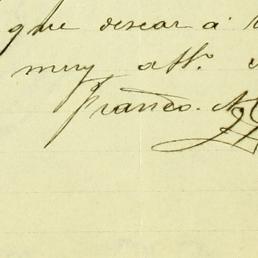 que desear á
muy aff.
Franco. A